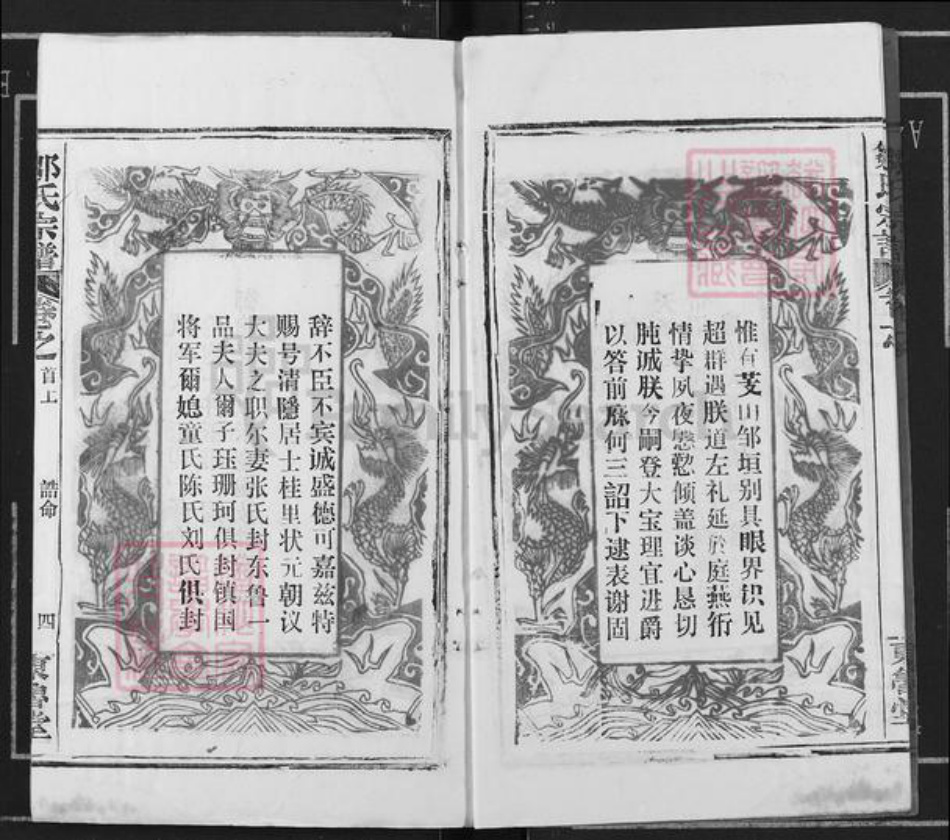 惟有芰山邹垣别具眼界识见
超群遇朕道左礼延於庭燕衎
情挚夙夜慇懃倾盖谈心恳切
肫诚朕今嗣登大宝理宜进爵
以答前庥何三詔下逮表谢固
辞不臣不宾诚盛德可嘉兹特
赐号清隱居士桂里状元朝议
大夫之职尔妻张氏封东鲁一
品夫人爾子珏珊珂俱封镇国
将军爾媳童氏陈氏刘氏俱封
邹氏宗譜 卷之一 首上 誥命 四 東魯堂